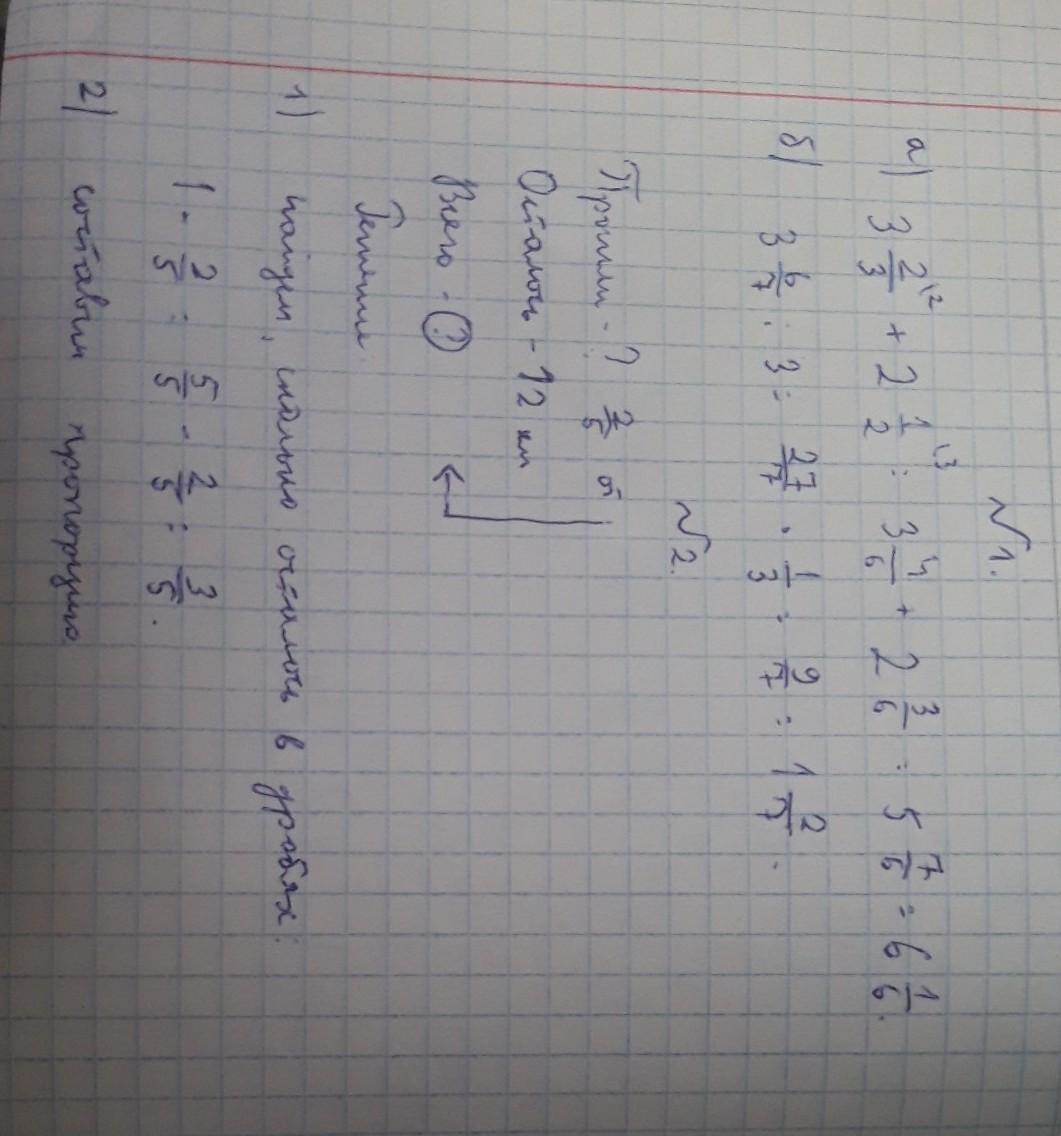 №1.
а) 3 2/3 \2 + 2 1/2 \3 = 3 4/6 + 2 3/6 = 5 7/6 = 6 1/6.
б) 3 6/7 : 3 = 27/7 · 1/3 = 9/7 = 1 2/7.
№2.
Прошли - ? 2/5 от
Осталось - 12 км
Всего - ?
Решение.
1) найдем, сколько осталось в дробях:
1 - 2/5 = 5/5 - 2/5 = 3/5.
2) составим пропорцию.